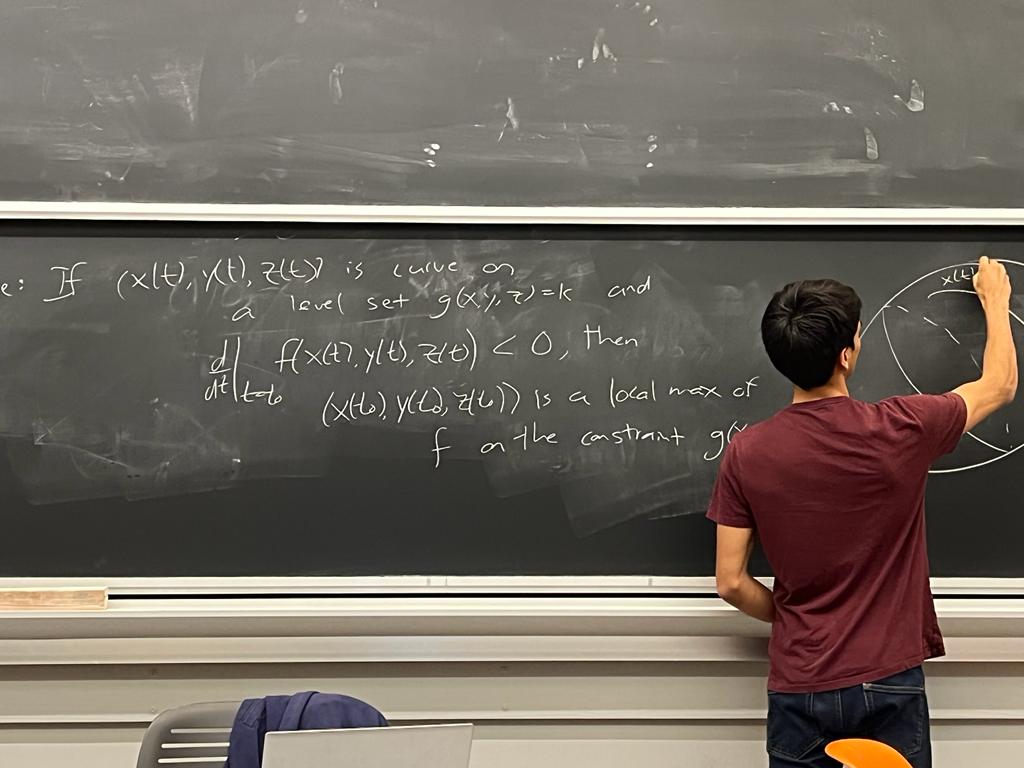 e: If (x(t), y(t), z(t)) is curve on
a level set g(x,y,z)=k and
d/dt|t=t₀ f(x(t), y(t), z(t)) < 0, then
(x(t₀), y(t₀), z(t₀)) is a local max of
f on the constraint g(x
x(t)